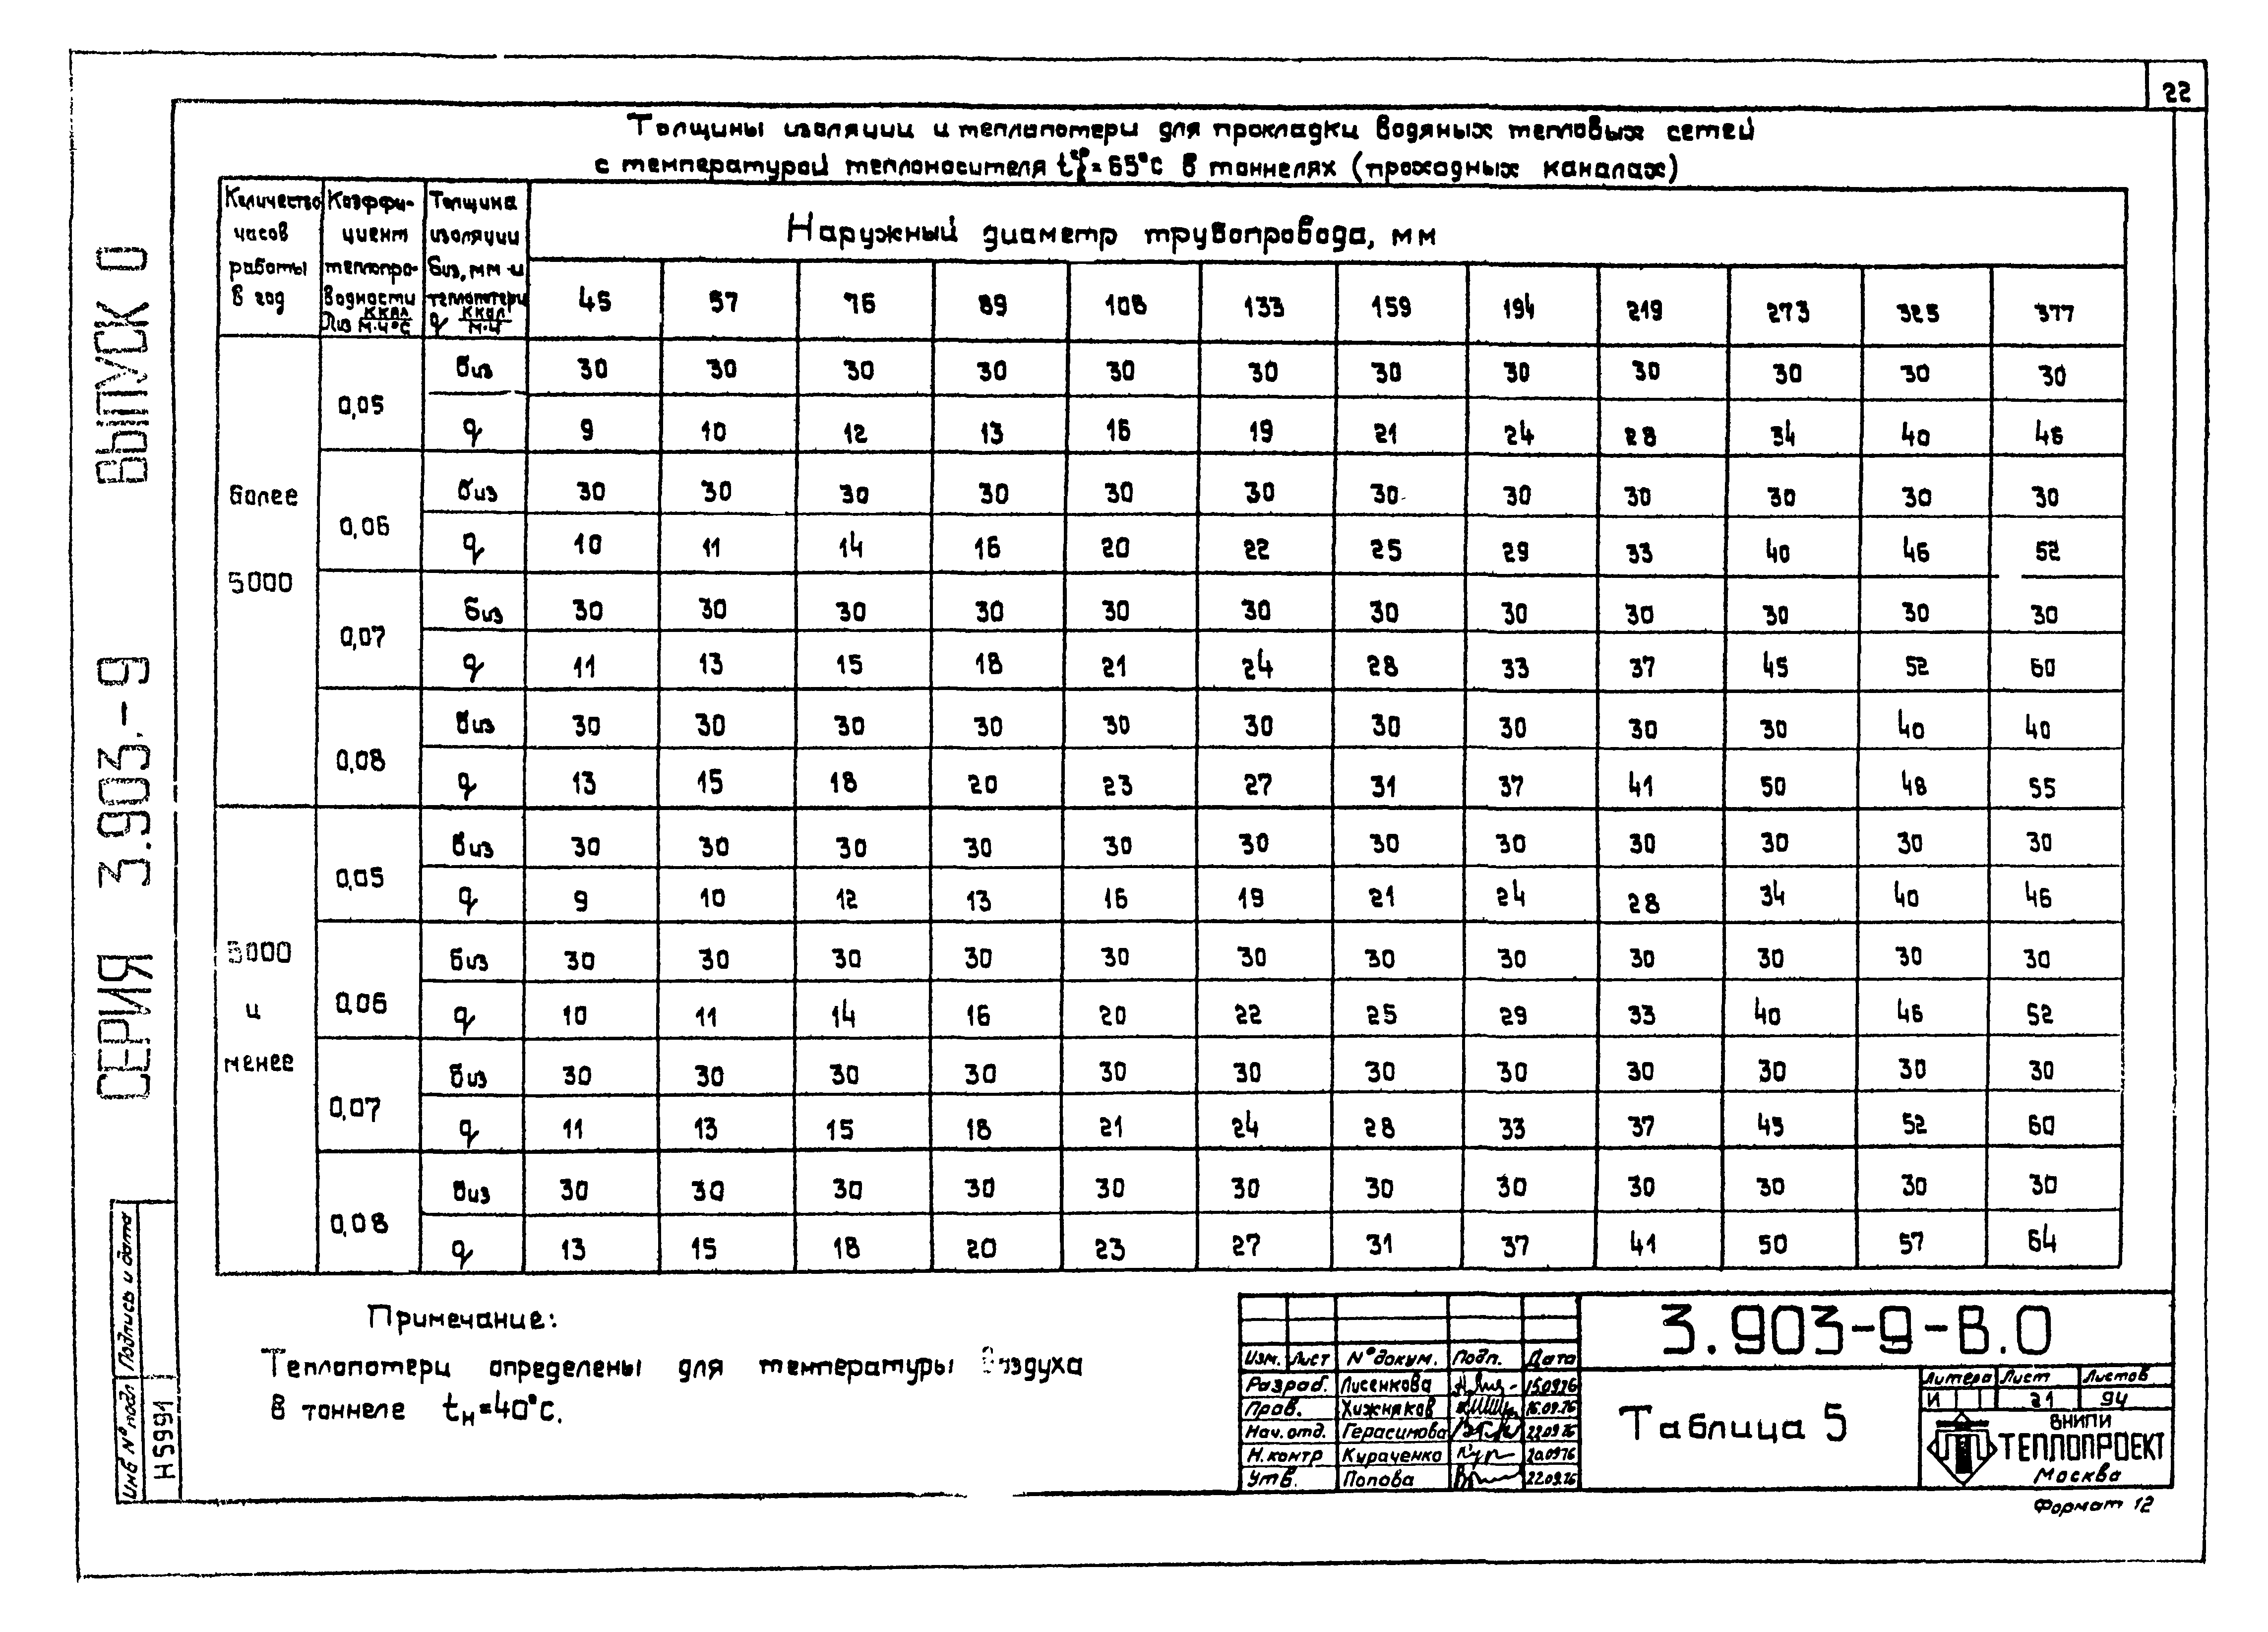 22
Толщины изоляции и теплопотери для прокладки водяных тепловых сетей
с температурой теплоносителя t ср г = 65°С в тоннелях (проходных каналах)
Количество часов работы в год | Коэффициент теплопроводности λиз ккал/м·ч°С | Толщина изоляции биз, мм и теплопотери q ккал/м·ч | Наружный диаметр трубопровода, мм
45 57 76 89 108 133 159 194 219 273 325 377
более 5000
0,05 биз 30 30 30 30 30 30 30 30 30 30 30 30
q 9 10 12 13 16 19 21 24 28 34 40 46
0,06 биз 30 30 30 30 30 30 30 30 30 30 30 30
q 10 11 14 16 20 22 25 29 33 40 46 52
0,07 биз 30 30 30 30 30 30 30 30 30 30 30 30
q 11 13 15 18 21 24 28 33 37 45 52 60
0,08 биз 30 30 30 30 30 30 30 30 30 30 40 40
q 13 15 18 20 23 27 31 37 41 50 48 55
5000 и менее
0,05 биз 30 30 30 30 30 30 30 30 30 30 30 30
q 9 10 12 13 16 19 21 24 28 34 40 46
0,06 биз 30 30 30 30 30 30 30 30 30 30 30 30
q 10 11 14 16 20 22 25 29 33 40 46 52
0,07 биз 30 30 30 30 30 30 30 30 30 30 30 30
q 11 13 15 18 21 24 28 33 37 45 52 60
0,08 биз 30 30 30 30 30 30 30 30 30 30 30 30
q 13 15 18 20 23 27 31 37 41 50 57 64
Примечание:
Теплопотери определены для температуры воздуха
в тоннеле tн=40°С.
СЕРИЯ 3.903.-9 ВЫПУСК 0
Инв N° подл Подпись и дата
Н5991
3.903-9-В.0
Изм. Лист N° докум. Подп. Дата
Разраб. Лисенкова 15.09.76
Пров. Хижняков 16.09.76
Нач. отд. Герасимова 22.09.76
Н.контр Кураченко 20.09.76
Утв. Попова 22.09.76
Таблица 5
Литера Лист Листов
И 21 94
ВНИПИ
ТЕПЛОПРОЕКТ
Москва
Формат 12